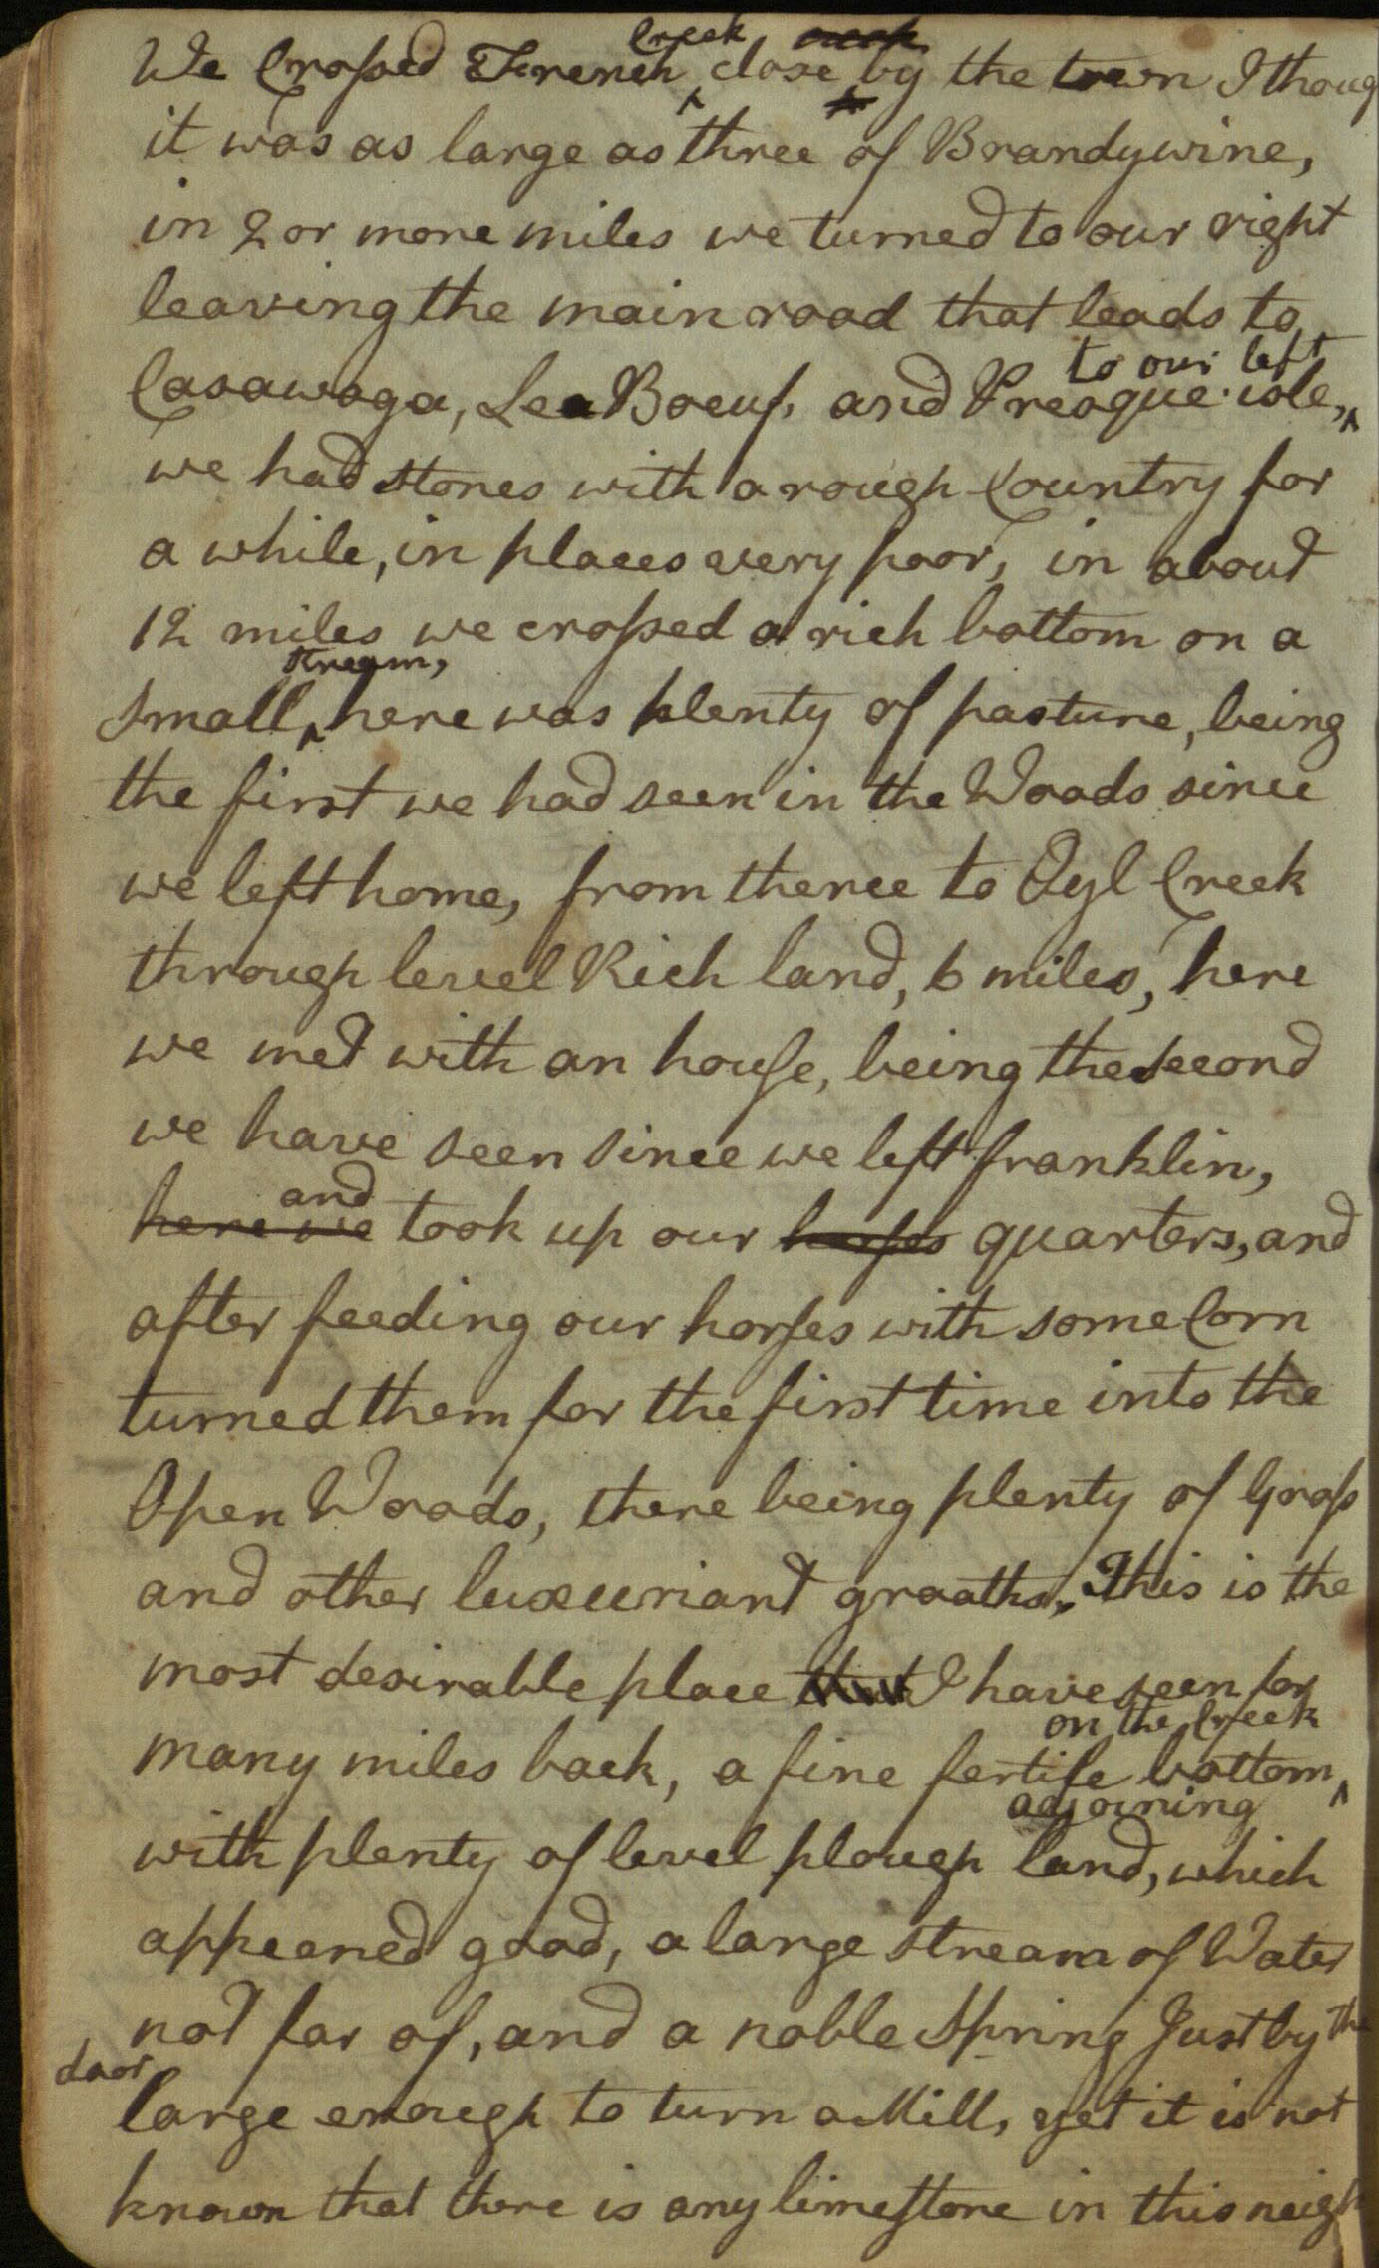 We Crossed French Creek close by the town I thoug
it was as large as three of Brandywine,
in 2 or more miles we turned to our right
leaving the main road that leads to
Casawaga, Lea Boeuf, and Presque isle, to our left
we had stones with a rough Country for
a while, in places very poor, in about
12 miles we crossed a rich bottom on a
small stream, here was plenty of pasture, being
the first we had seen in the Woods since
we left home, from thence to Oyl Creek
through level Rich land, 6 miles, here
we met with an house, being the second
we have seen since we left franklin,
here we and took up our horses quarters, and
after feeding our horses with some Corn
turned them for the first time into the
Open Woods, there being plenty of Grass
and other luxuriant growths. This is the
most desirable place that I have seen for
many miles back, a fine fertile bottom on the Creek
with plenty of level plough land, adjoining which
appeared good, a large stream of Water
not far of, and a noble Spring Just by the
door large enough to turn a Mill, yet it is not
known that there is any limestone in this neigh